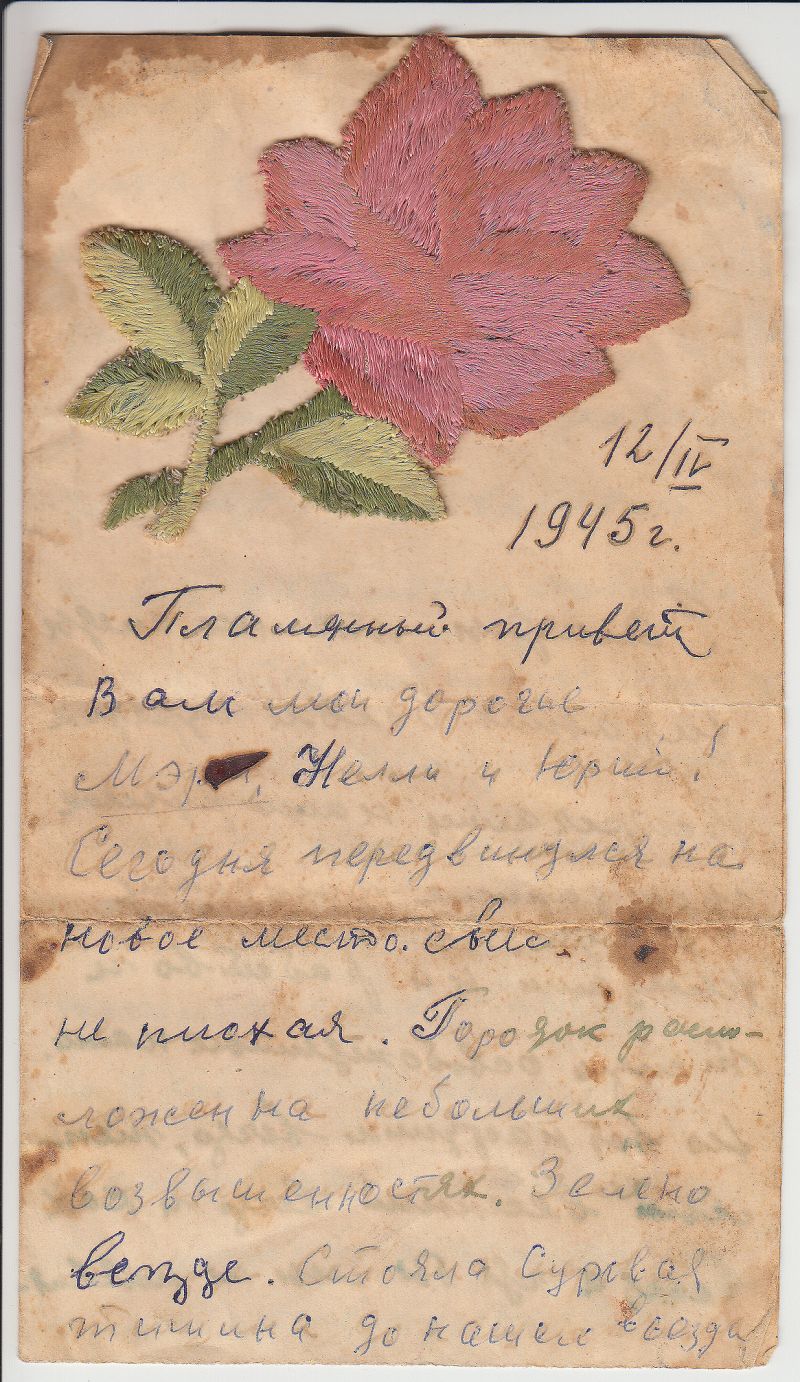 12/IV
1945 г.
Пламенный привет
Вам мои дорогие
Мэри, Нелли и Юрий!
Сегодня передвинулся на
новое место.
не плохая. Городок распо-
ложен на небольших
возвышенностях. Зелено
везде. Стояла суровая
тишина до нашего въезда